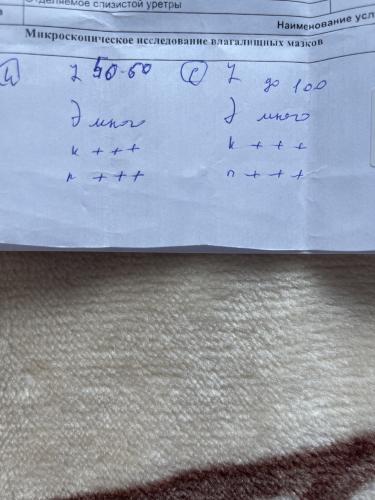 Отделяемое слизистой уретры
Наименование усл
Микроскопическое исследование влагалищных мазков
L 50-60 C L до 100
Э много Э много
к +++ к +++
п +++ п +++